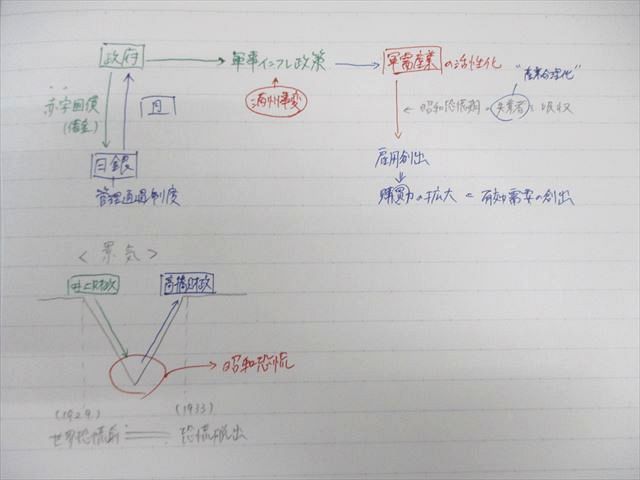 政府
軍事インフレ政策
軍需産業の活性化
"産業合理化"
赤字国債
(借金)
円
満州事変
昭和恐慌期の失業者に吸収
日銀
管理通貨制度
雇用創出
購買力の拡大 = 有効需要の創出
<景気>
井上財政
高橋財政
昭和恐慌
(1929)
(1933)
世界恐慌
恐慌脱出